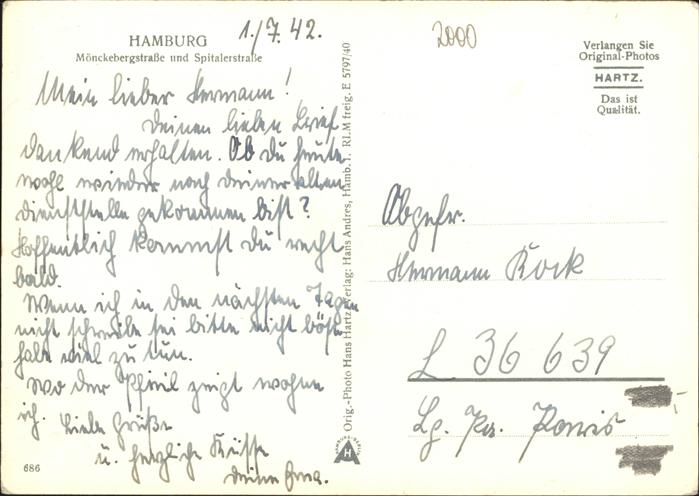 HAMBURG
Mönckebergstraße und Spitalerstraße
1./7. 42.
2000
Verlangen Sie
Original-Photos
HARTZ.
Das ist
Qualität.
Mein lieber Hermann!
Deinen lieben Brief
dankend erhalten. Ob Du heute
wohl wieder nach Deiner alten
Dienststelle gekommen bist?
Hoffentlich kommst Du recht
bald.
Wenn ich in den nächsten Tagen
nicht schreibe sei bitte nicht böse
habe viel zu tun.
Wo der Pfeil zeigt wohne
ich. Liebe Grüße
u. herzliche Küsse
Deine Erna.
Orig.-Photo Hans Hartz, Verlag: Hans Andres, Hamb. 1. RLM freig. E 5797/40
Obgefr.
Hermann Kock
L 36 639
Lg. Pa. Paris
HAMBURG
H
686